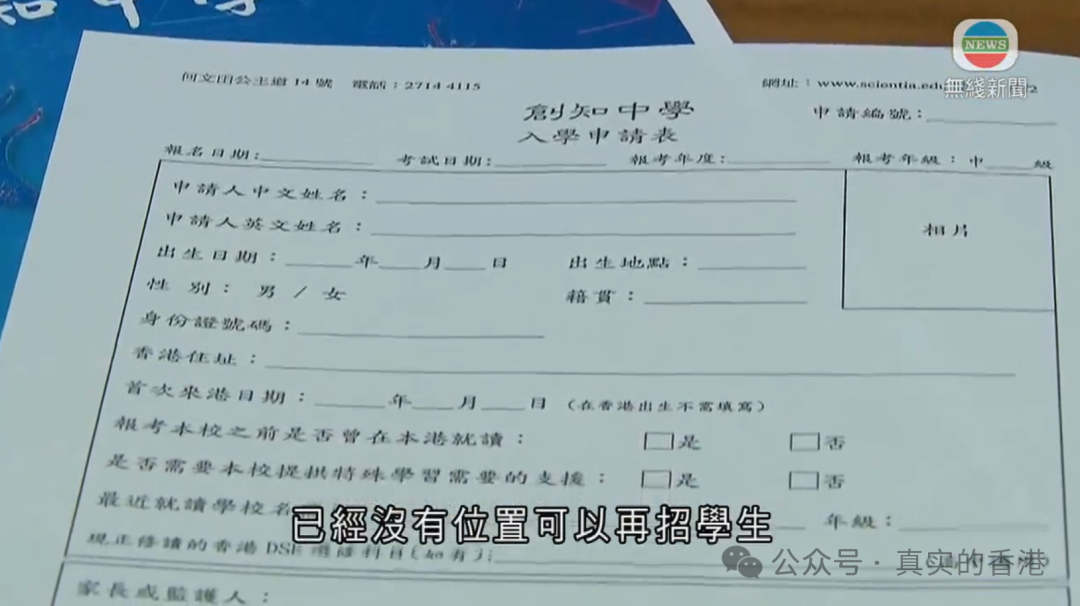 知中學
NEWS
無綫新聞
何文田公主道 14 號 電話：2714 4115 網址：www.scientia.ed
創知中學 申請編號：
入學申請表
報名日期： 考試日期： 報考年度： 報考年級：中 級
申請人中文姓名：
申請人英文姓名：
相片
出生日期： 年 月 日 出生地點：
性 別： 男 / 女 籍貫：
身份證號碼：
香港住址：
首次來港日期： 年 月 日 (在香港出生不需填寫)
報考本校之前是否曾在本港就讀： 是 否
是否需要本校提供特殊學習需要的支援： 是 否
最近就讀學校名 年級：
已經沒有位置可以再招學生
現正修讀的香港 DSE 選修科目(如有)：
公众号 · 真实的香港
家長或監護人：